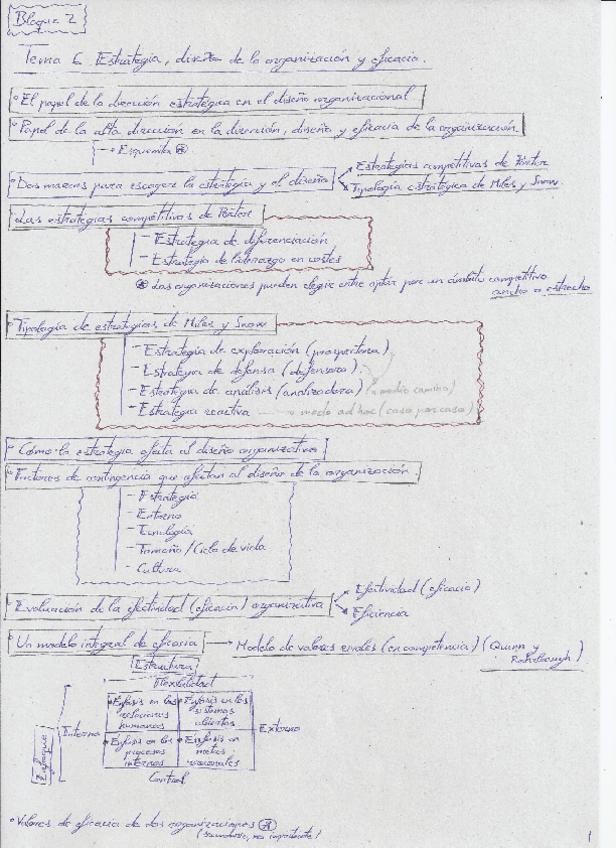 Bloque 2
Tema 6. Estrategia, diseño de la organización y eficacia.
° El papel de la dirección estratégica en el diseño organizacional
° Papel de la alta dirección en la dirección, diseño y eficacia de la organización
→ Esquemita
° Dos marcos para escoger la estrategia y el diseño
Estrategias competitivas de Porter
Tipología estratégica de Miles y Snow.
° Las estrategias competitivas de Porter
- Estrategia de diferenciación
- Estrategia de liderazgo en costes
Las organizaciones pueden elegir entre optar por un ámbito competitivo
ancho o estrecho
° Tipología de estrategias de Miles y Snow
- Estrategia de exploración (prospectora)
- Estrategia de defensa (defensora)
- Estrategia de análisis (analizadora) (a medio camino)
- Estrategia reactiva → modo ad hoc (caso por caso)
° Cómo la estrategia afecta al diseño organizativo
° Factores de contingencia que afectan al diseño de la organización.
- Estrategia
- Entorno
- Tecnología
- Tamaño / Ciclo de vida
- Cultura
° Evaluación de la efectividad (eficacia) organizativa
Efectividad (eficacia)
Eficiencia
° Un modelo integral de eficacia → Modelo de valores rivales (en competencia) (Quinn y
Rohrbaugh)
Estructura
Flexibilidad
Enfoque
Interno
Énfasis en las relaciones humanas
Énfasis en los sistemas abiertos
Externo
Énfasis en los procesos internos
Énfasis en metas racionales
Control
° Valores de eficacia de dos organizaciones
1